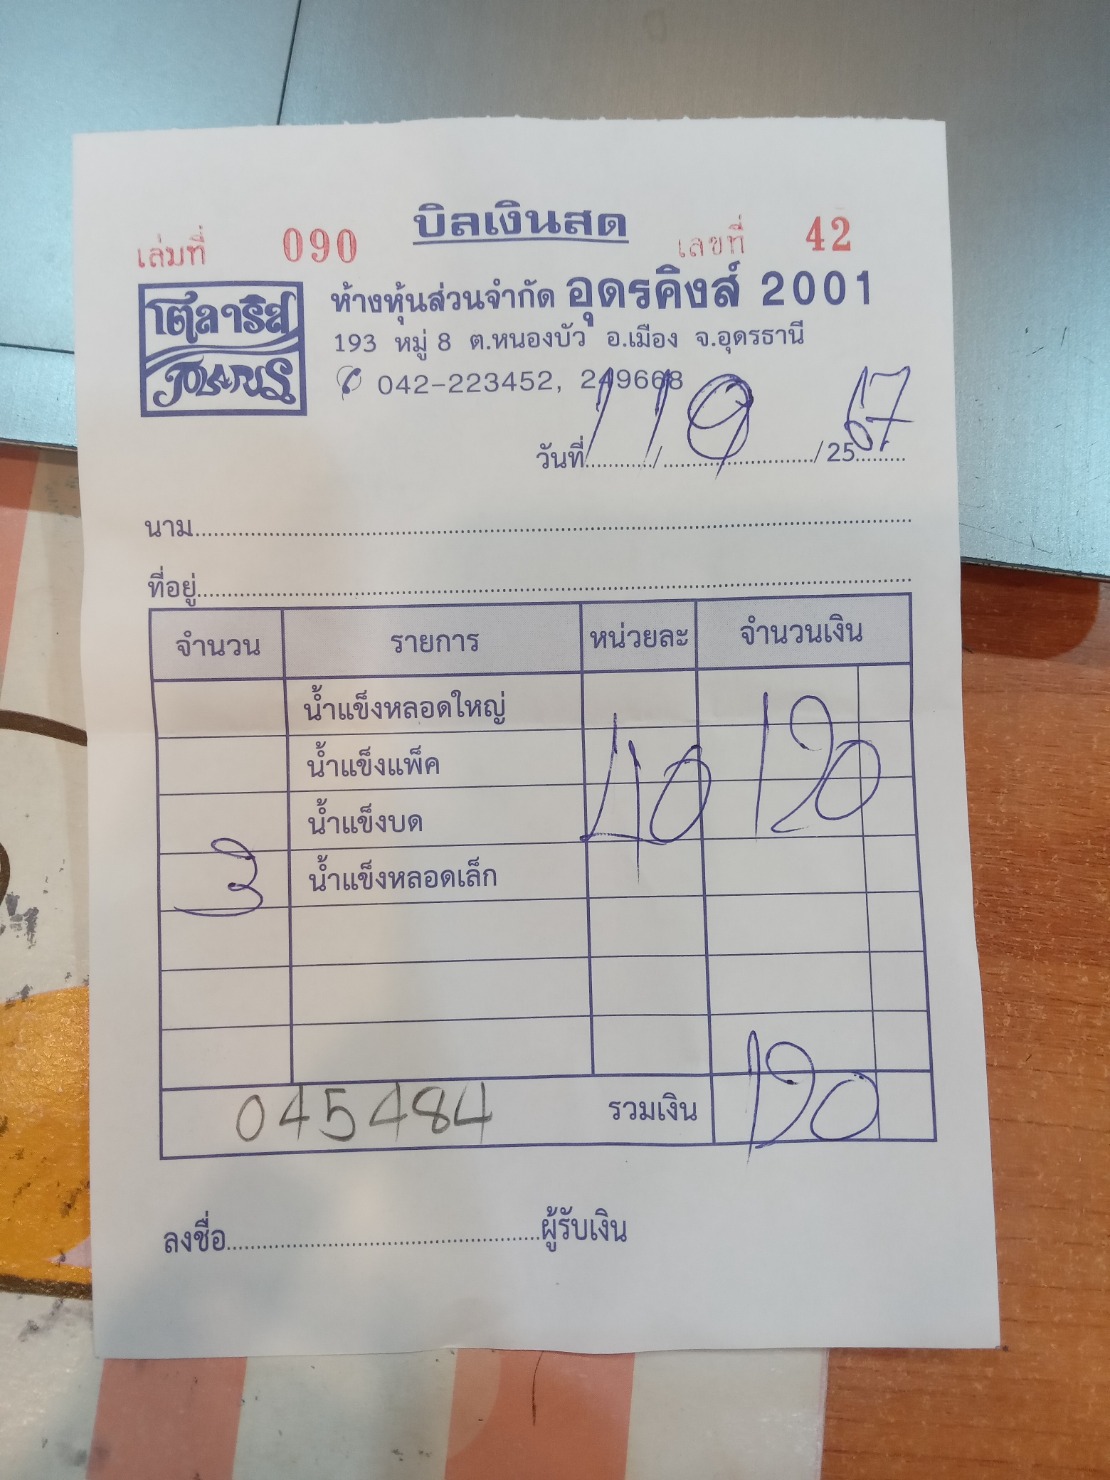 บิลเงินสด
เล่มที่ 090 เลขที่ 42
โตลาริส
ห้างหุ้นส่วนจำกัด อุดรคิงส์ 2001
193 หมู่ 8 ต.หนองบัว อ.เมือง จ.อุดรธานี
042-223452, 249668
วันที่ 1 / 9 / 2567
นาม
ที่อยู่
จำนวน รายการ หน่วยละ จำนวนเงิน
น้ำแข็งหลอดใหญ่
น้ำแข็งแพ็ค
น้ำแข็งบด 40 120
3 น้ำแข็งหลอดเล็ก
045484 รวมเงิน 120
ลงชื่อ ผู้รับเงิน